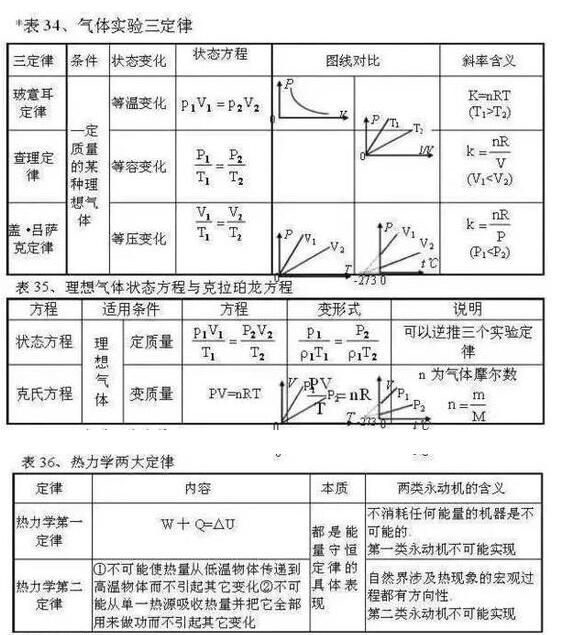 *表34、气体实验三定律
三定律 条件 状态变化 状态方程 图线对比 斜率含义
玻意耳定律 一定质量的某种理想气体 等温变化 p₁V₁ = p₂V₂ P K 0 P T₁ T₂ 0 1/V K=nRT (T₁>T₂)
查理定律 等容变化 P₁/T₁ = P₂/T₂ k = nR/V (V₁<V₂)
盖·吕萨克定律 等压变化 V₁/T₁ = V₂/T₂ P V₁ V₂ 0 T P V₁ V₂ -273 0 t℃ k = nR/P (P₁<P₂)
表35、理想气体状态方程与克拉珀龙方程
方程 适用条件 方程 变形式 说明
状态方程 理想气体 定质量 p₁V₁/T₁ = P₂V₂/T₂ p₁/ρ₁T₁ = P₂/ρ₁T₂ 可以逆推三个实验定律
克氏方程 变质量 PV=nRT PV/T = nR V P₁ P₂ 0 T V P₁ P₂ -273 0 t℃ n 为气体摩尔数 n = m/M
表36、热力学两大定律
定律 内容 本质 两类永动机的含义
热力学第一定律 W＋Q=△U 都是能量守恒定律的具体表现 不消耗任何能量的机器是不可能的. 第一类永动机不可能实现
热力学第二定律 ①不可能使热量从低温物体传递到高温物体而不引起其它变化②不可能从单一热源吸收热量并把它全部用来做功而不引起其它变化 自然界涉及热现象的宏观过程都有方向性. 第二类永动机不可能实现